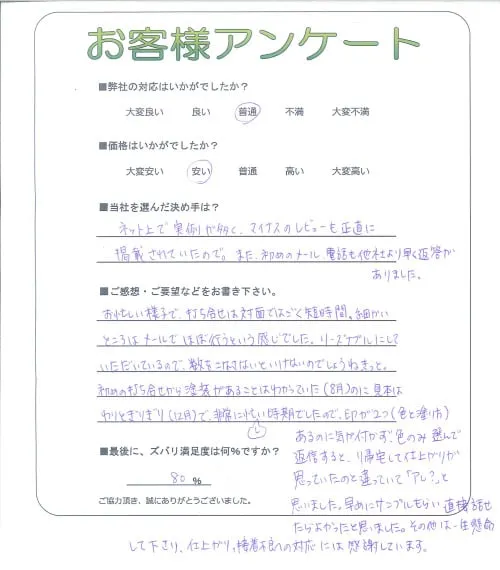 お客様アンケート
■弊社の対応はいかがでしたか？
大変良い 良い 普通 不満 大変不満
■価格はいかがでしたか？
大変安い 安い 普通 高い 大変高い
■当社を選んだ決め手は？
ネット上で実例が多く、マイナスのレビューも正直に
掲載されていたので。また、初めのメール、電話も他社より早く返答が
ありました。
■ご感想・ご要望などをお書き下さい。
お忙しい様子で、打ち合せは対面ではごく短時間。細かい
ところはメールでほぼ行うという感じでした。リーズナブルにして
いただいているので、数をこなさないといけないのでしょうねきっと。
初めの打ち合せから塗装があることはわかっていた(8月)のに見本は
わりとぎりぎり(12月)で、非常に忙しい時期でしたので、印が2つ(色と塗り方)
あるのに気が付かず、色のみ選んで
返信すると、り帰宅して仕上がりが
思っていたのと違っていて「アレ？」と
思いました。早めにサンプルもらい直接話せ
たらよかったと思いました。その他は一生懸命
して下さり、仕上がり、接着不良への対応には感謝しています。
■最後に、ズバリ満足度は何％ですか？
80 ％
ご協力頂き、誠にありがとうございました。